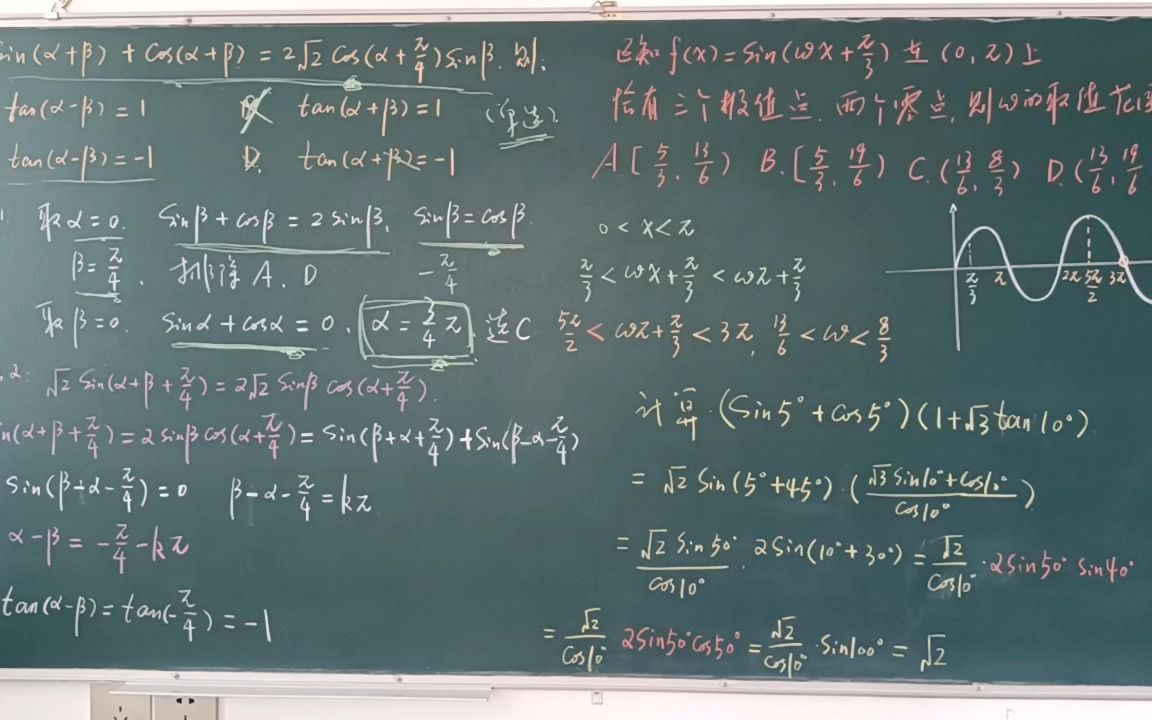 sin(α+β) + cos(α+β) = 2√2 cos(α+π/4) sinβ. 则.
tan(α-β) = 1   B. tan(α+β) = 1 (单选)
tan(α-β) = -1   D. tan(α+β) = -1
1. 取 α=0. sinβ + cosβ = 2 sinβ. sinβ = cosβ.
β = π/4. 排除 A. D   -π/4
取 β=0. sinα + cosα = 0. α = 3/4 π. 选 C
2: √2 sin(α+β+π/4) = 2√2 sinβ cos(α+π/4).
sin(α+β+π/4) = 2 sinβ cos(α+π/4) = sin(β+α+π/4) + sin(β-α-π/4)
sin(β-α-π/4) = 0   β-α-π/4 = kπ
α-β = -π/4 - kπ
tan(α-β) = tan(-π/4) = -1
已知 f(x) = sin(ωx+π/3) 在 (0, π) 上
恰有三个极值点. 两个零点, 则ω的取值范
A. [5/3, 13/6)   B. [5/3, 19/6)   C. (13/6, 8/3)   D. (13/6, 19/6
0 < x < π
π/3 < ωx+π/3 < ωπ+π/3
5π/2 < ωπ+π/3 < 3π, 13/6 < ω < 8/3
π/3   π   2π   5π/2   3π
计算. (sin5°+cos5°)(1+√3 tan10°)
= √2 sin(5°+45°)·(√3 sin10°+cos10°/cos10°)
= √2 sin50°/cos10° · 2sin(10°+30°) = √2/cos10° · 2sin50° sin40°
= √2/cos10° 2sin50°cos50° = √2/cos10° · sin100° = √2